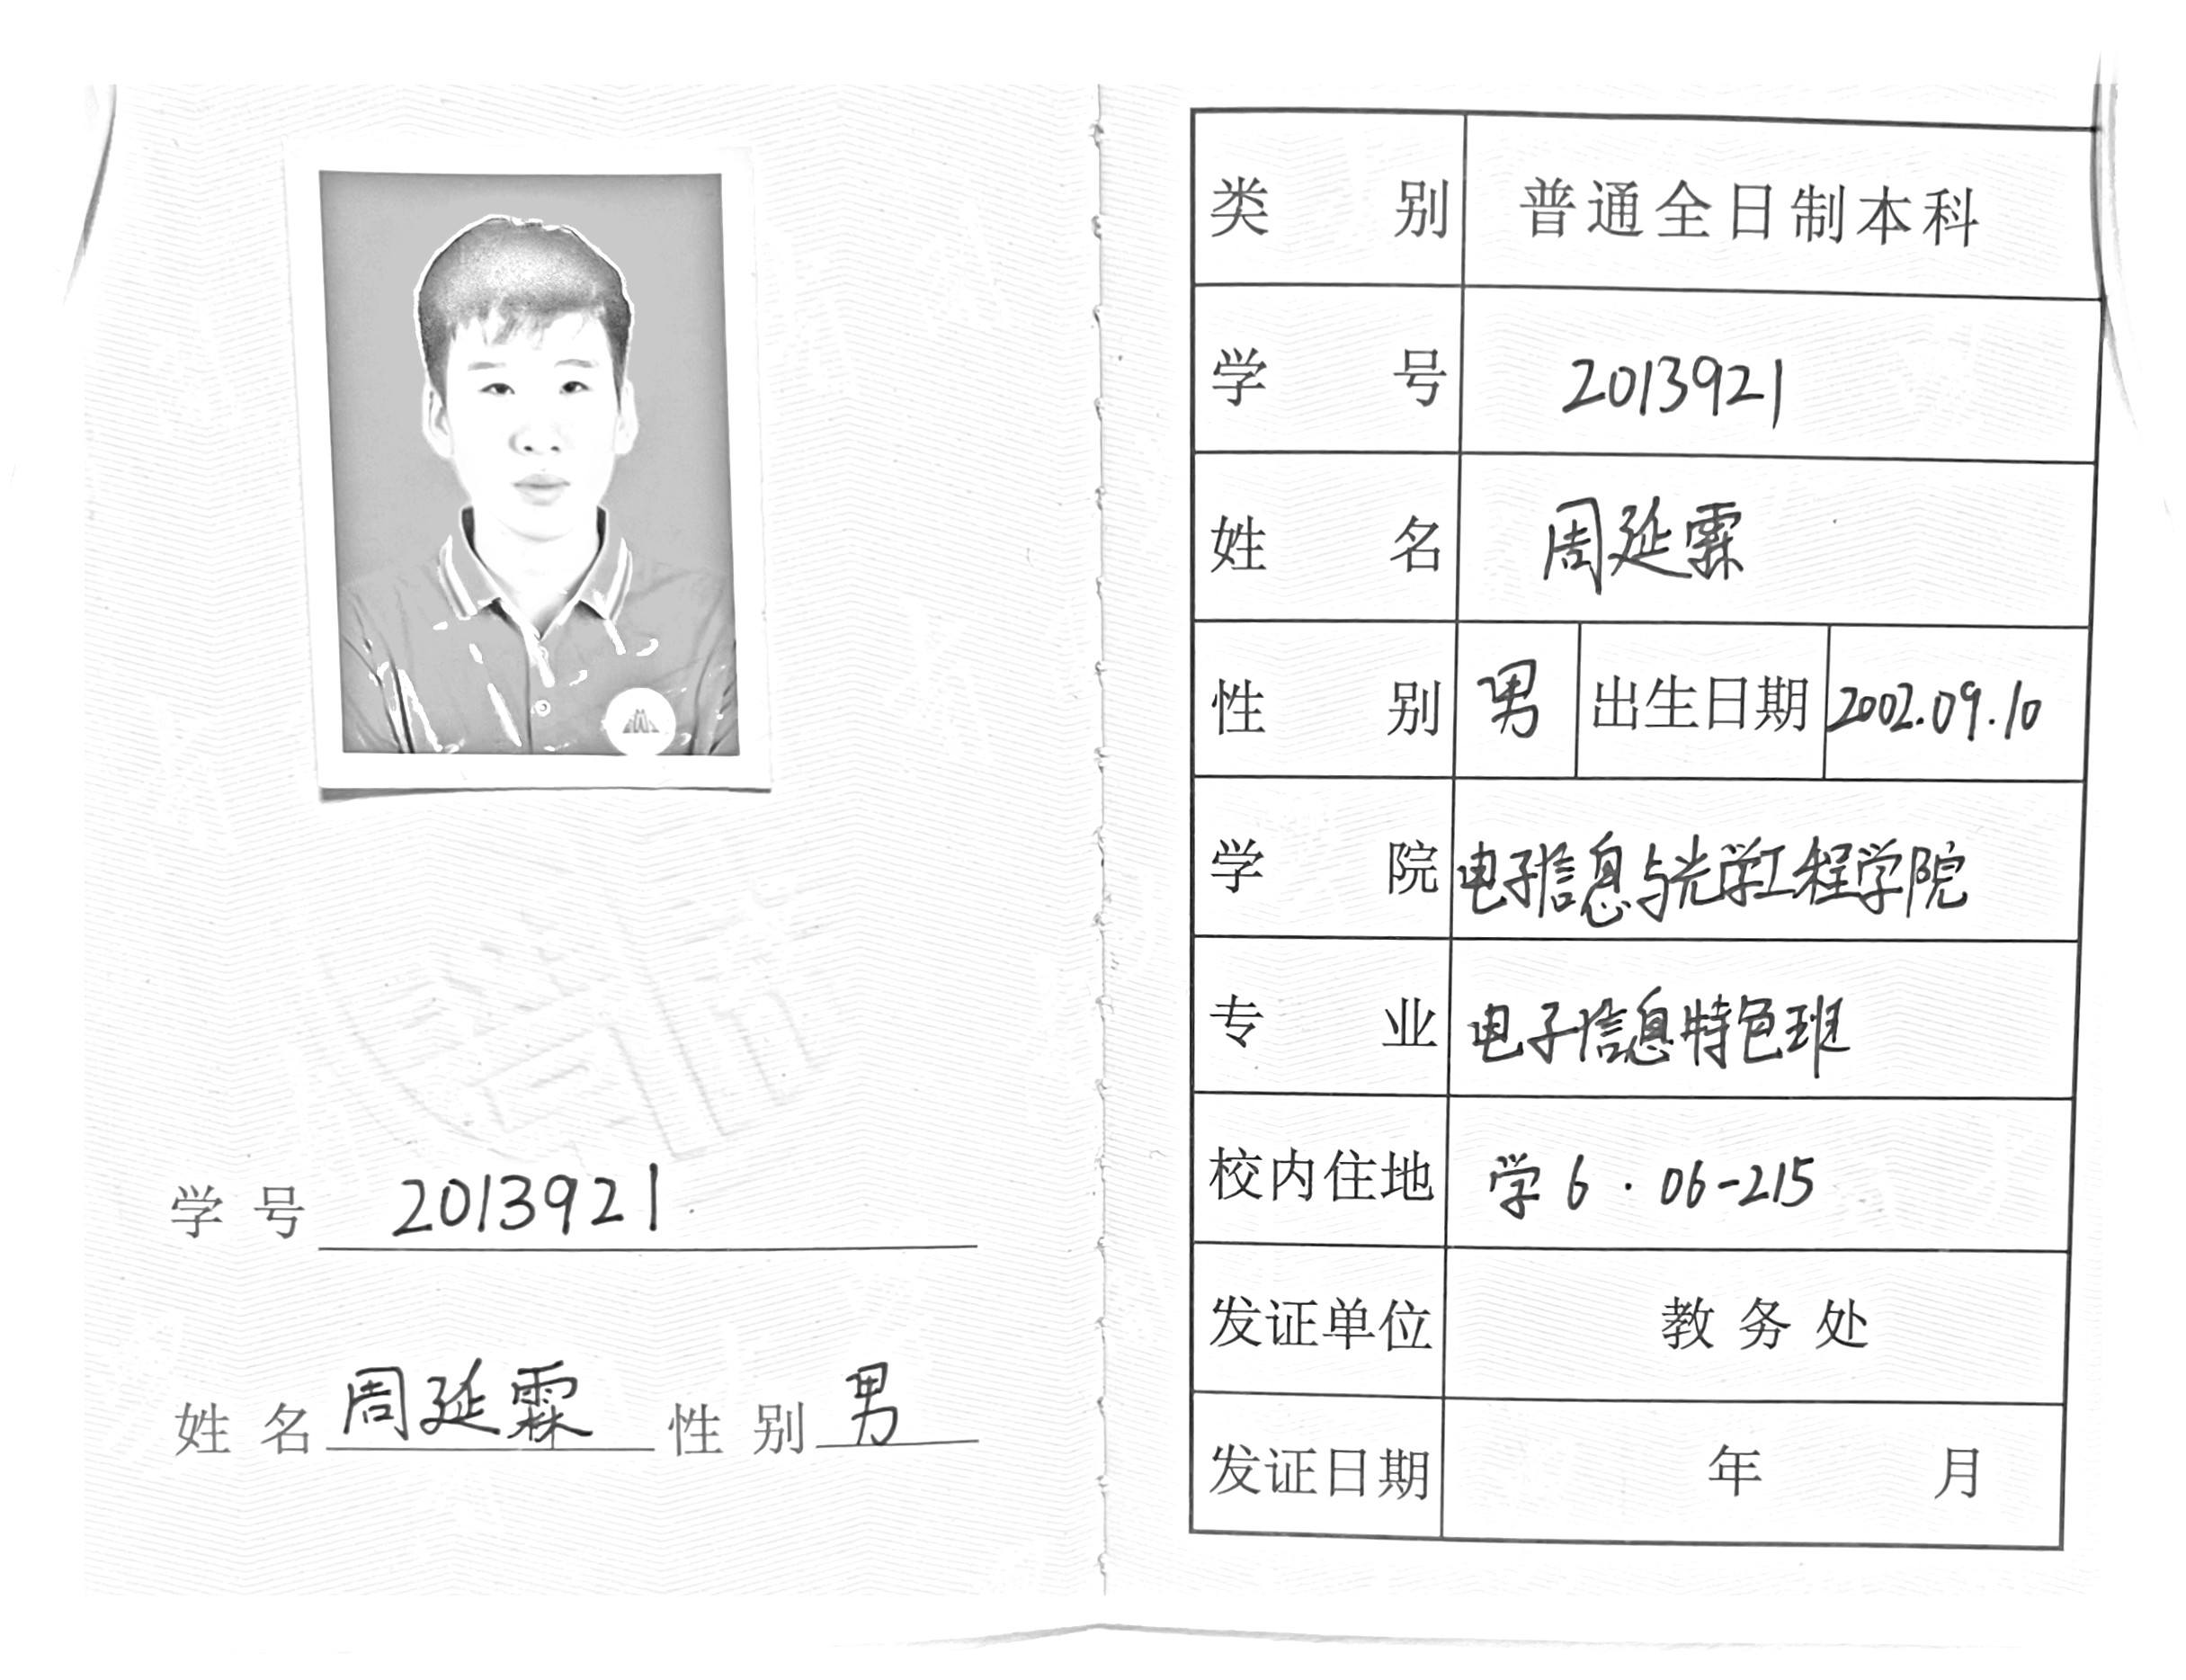 学号 2013921
姓名 周延霖 性别 男
类别 普通全日制本科
学号 2013921
姓名 周延霖
性别 男 出生日期 2002.09.10
学院 电子信息与光学工程学院
专业 电子信息特色班
校内住地 学6·06-215
发证单位 教务处
发证日期 年 月